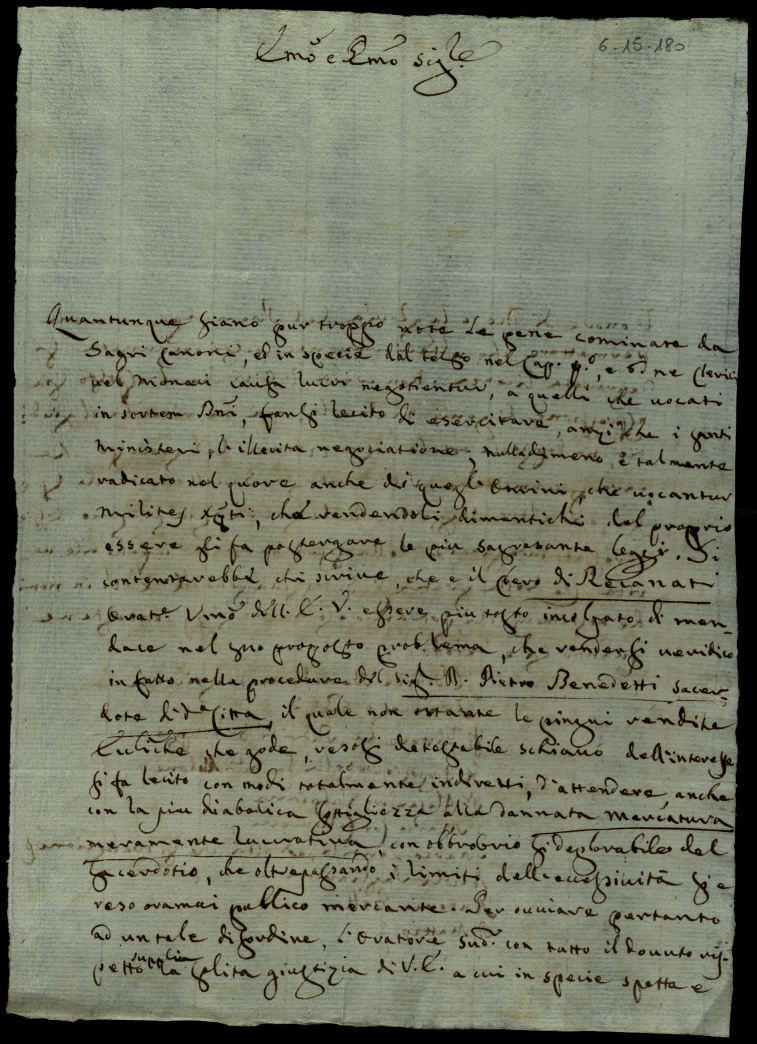 6-15-180
Emo e Rmo Sigre
Quantunque siano pur troppo note le pene cominate da
Sagri Canoni, et in specie dal testo nel Cap. po, e 6o ne Clerici
vel Monaci causa lucri negotientur, a quelli che vocati
in sortem Dni, fansi lecito di esercitare, anzi che i santi
ministeri, l'illecita negociatione, nulladimeno è talmente
radicato nel quore anche di quegl'Uomini, che vocantur
milites Xpti, che rendendoli dimentichi del proprio
essere gli fa postergare le più sagrosante leggi. Si
contentarebbe chi scrive, che è il Clero di Recanati
Orate Umo dell'E. V. essere più tosto incolpato di men-
dace nel suo proposto problema, che rendersi veridico
in fatto nella procedura del Sig. D. Pietro Benedetti Sacer-
dote di da Città, il quale non ostante le pingui rendite
che gode, resosi detestabile schiavo dell'interesse
si fa lecito con modi totalmente indiretti, d'attendere, anche
con la più diabolica sottigliezza alla dannata mercatura
meramente lucrativa, con obbrobrio sì deplorabile del
Sacerdotio, che oltrepassando i limiti dell'eccessività si è
reso oramai publico mercante. Per ovviare pertanto
ad un tale disordine, l'Oratore sud. con tutto il dovuto ris-
petto supplica la solita giustizia di V. E. a cui in specie spetta e